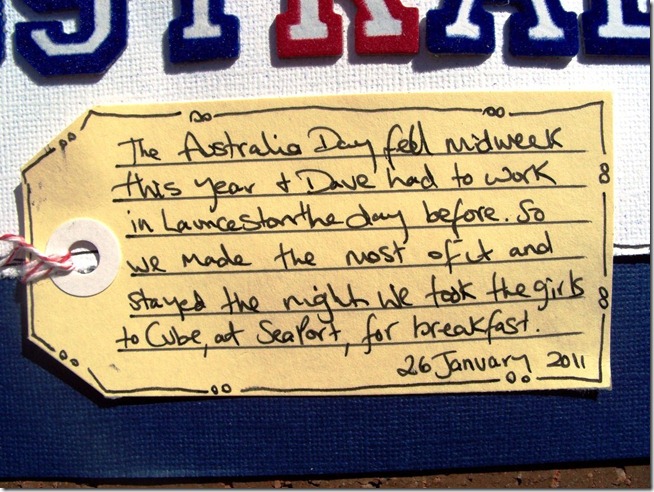 STRAL
The Australia Day fell midweek
this year & Dave had to work
in Launceston the day before. So
we made the most of it and
stayed the night. We took the girls
to Cube, at Seaport, for breakfast.
26 January 2011